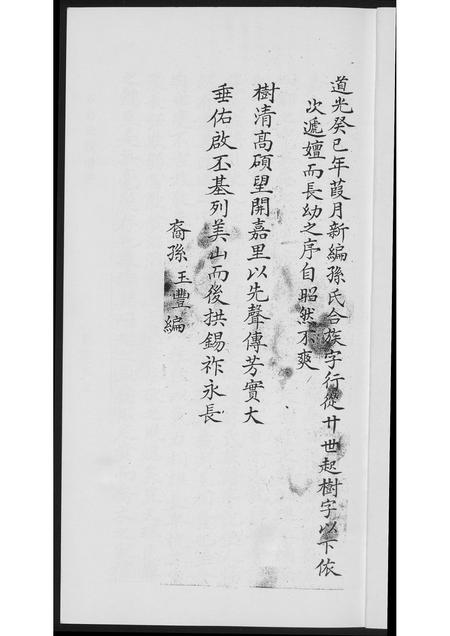 道光癸巳年葭月新編孫氏合族字行從廿世起樹字以下依
次遞嬗而長幼之序自昭然不爽
樹清高碩望開嘉里以先聲傳芳實大
垂佑啟丕基列美山而後拱錫祚永長
裔孫玉豐編